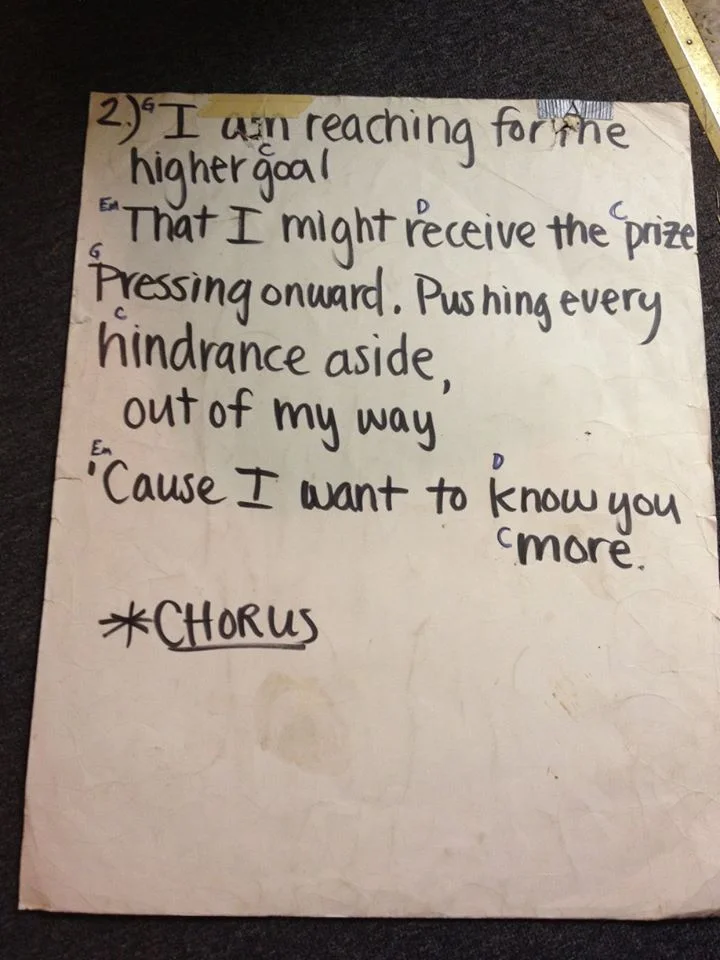 2.) G I am reaching for the
C
higher goal
Em D C
That I might receive the prize
G
Pressing onward. Pushing every
C
hindrance aside,
out of my way
Em D
'Cause I want to know you
C more.
*CHORUS